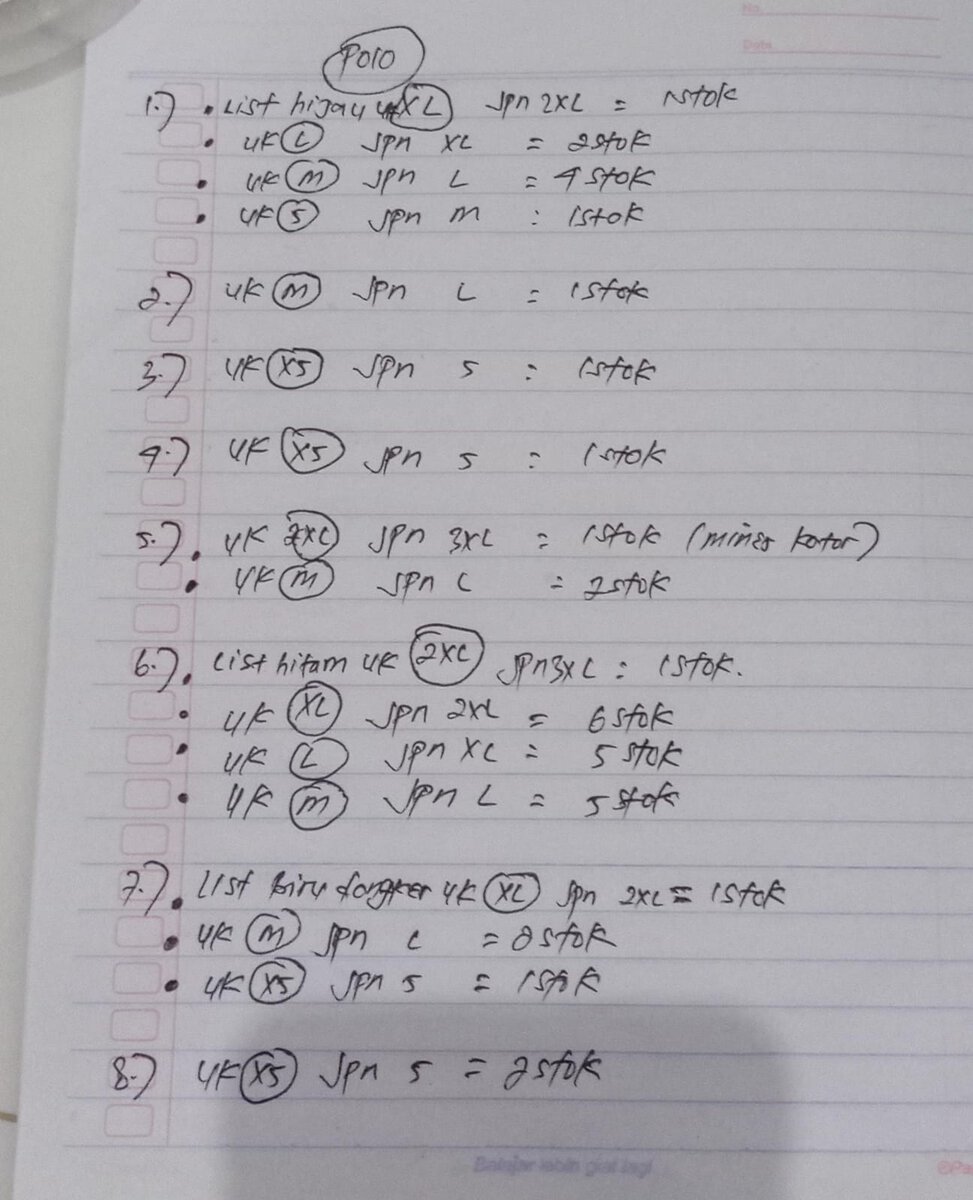 No.
Date
Polo
1.) • List hijau uk XL Jpn 2XL = 1stok
• uk L Jpn XL = 2stok
• uk M Jpn L = 4 stok
• uk S Jpn M : 1stok
2.) uk M Jpn L = 1stok
3.) uk XS Jpn S : 1stok
4.) uk XS Jpn S : 1stok
5.) • uk 2XL Jpn 3XL = 1stok (mines kotor)
• uk M Jpn L = 2stok
6.) • List hitam uk 2XL Jpn 3XL : 1stok.
• uk XL Jpn 2XL = 6 stok
• uk L Jpn XL = 5 stok
• uk M Jpn L = 5 stok
7.) • List biru dongker uk XL Jpn 2XL = 1stok
• uk M Jpn L = 2stok
• uk XS Jpn S = 1stok
8.) uk XS Jpn S = 2stok
Belajar lebih giat lagi